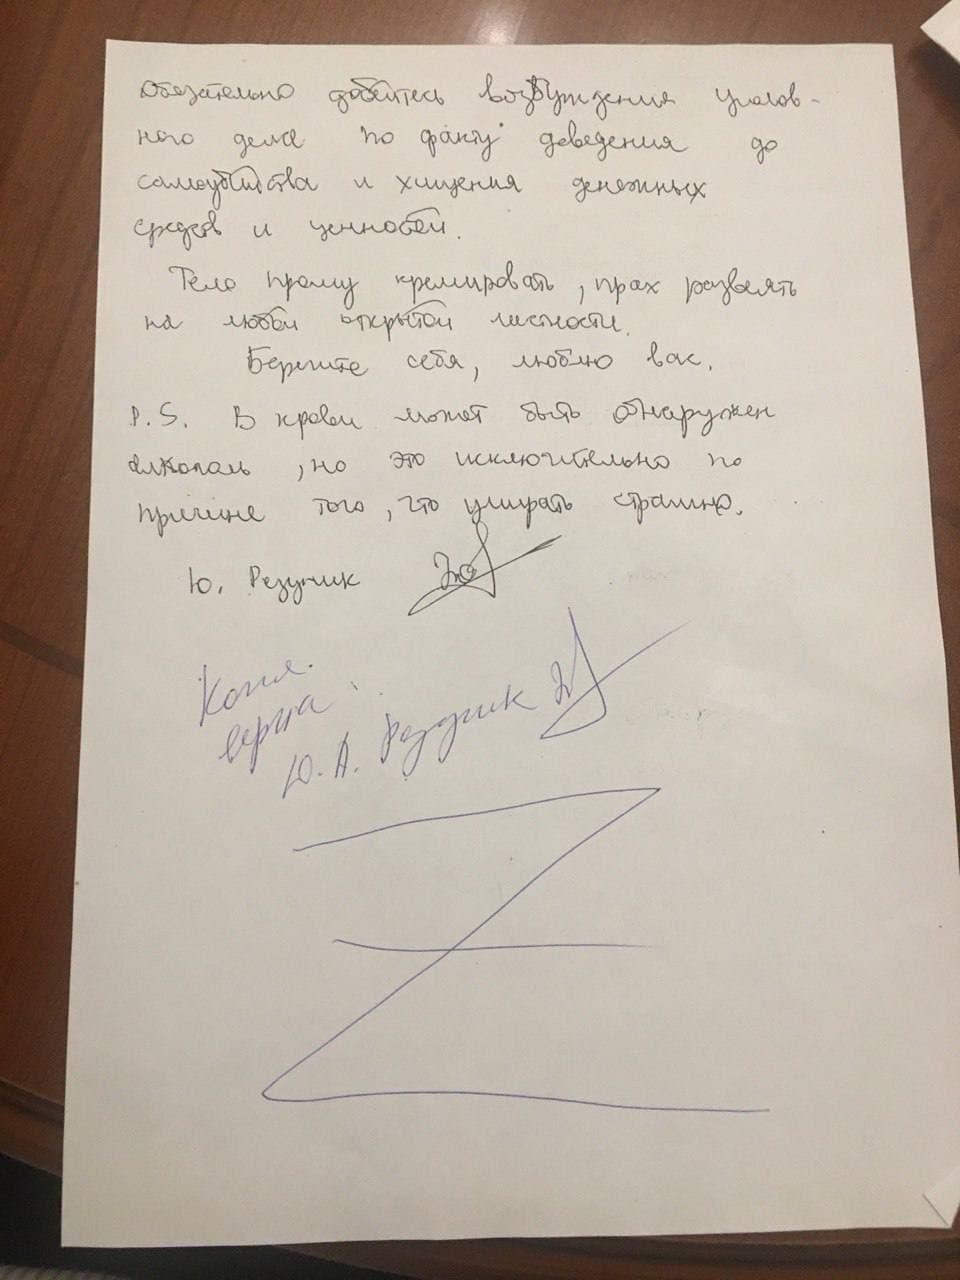 Обязательно добейтесь возбуждения уголов-
ного дела по факту доведения до
самоубийства и хищения денежных
средств и ценностей.
Тело прошу кремировать, прах развеять
на любой открытой местности.
Берегите себя, люблю вас.
P.S. В крови может быть обнаружен
алкоголь, но это исключительно по
причине того, что умирать страшно.
Ю. Резуник
Копия
верна
Ю. А. Резуник